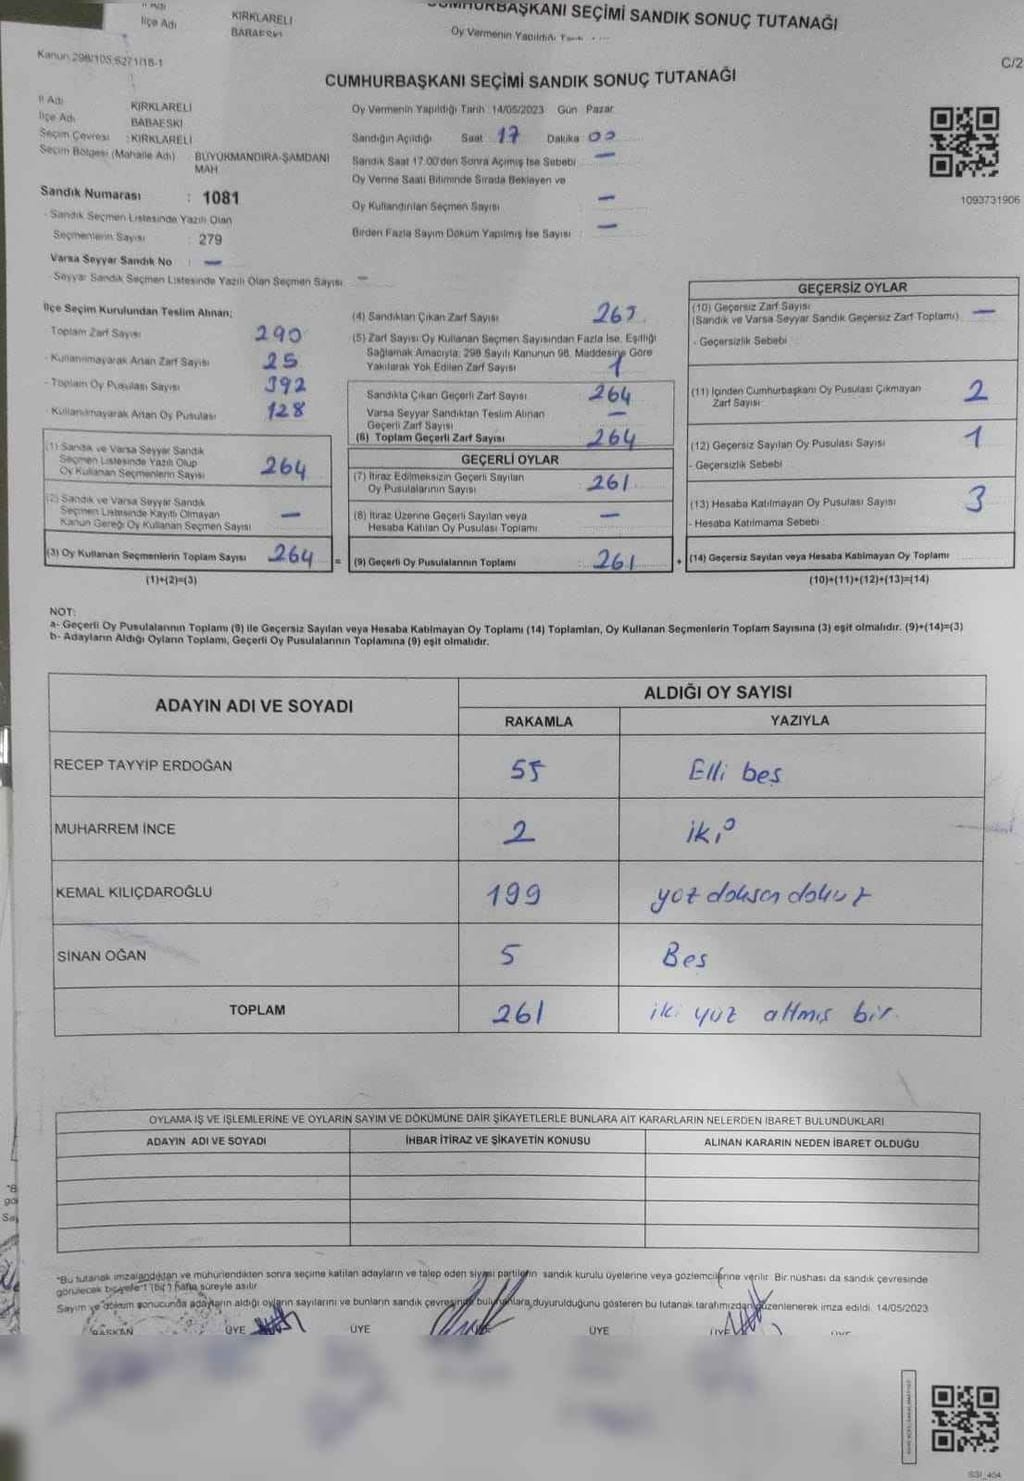 İlçe Adı KIRKLARELİ
BABAESKİ
CUMHURBAŞKANI SEÇİMİ SANDIK SONUÇ TUTANAĞI
Oy Vermenin Yapıldığı
C/2
CUMHURBAŞKANI SEÇİMİ SANDIK SONUÇ TUTANAĞI
İl Adı KIRKLARELİ
İlçe Adı BABAESKİ
Seçim Çevresi : KIRKLARELİ
Seçim Bölgesi (Mahalle Adı) BÜYÜKMANDIRA-ŞAMDANI
MAH
Sandık Numarası : 1081
- Sandık Seçmen Listesinde Yazılı Olan
Seçmenlerin Sayısı : 279
Varsa Seyyar Sandık No : —
- Seyyar Sandık Seçmen Listesinde Yazılı Olan Seçmen Sayısı : —
Oy Vermenin Yapıldığı Tarih 14/05/2023 Gün Pazar
Sandığın Açıldığı Saat 17 Dakika 00
Sandık Saat 17.00'den Sonra Açılmış İse Sebebi —
Oy Verme Saati Bitiminde Sırada Bekleyen ve
Oy Kullandırılan Seçmen Sayısı —
Birden Fazla Sayım Döküm Yapılmış İse Sayısı : —
1093731906
İlçe Seçim Kurulundan Teslim Alınan;
Toplam Zarf Sayısı 290
- Kullanılmayarak Artan Zarf Sayısı 25
- Toplam Oy Pusulası Sayısı 392
- Kullanılmayarak Artan Oy Pusulası 128
(1) Sandık ve Varsa Seyyar Sandık
Seçmen Listesinde Yazılı Olup
Oy Kullanan Seçmenlerin Sayısı 264
(2) Sandık ve Varsa Seyyar Sandık
Seçmen Listesinde Kayıtlı Olmayan
Kanun Gereği Oy Kullanan Seçmen Sayısı —
(3) Oy Kullanan Seçmenlerin Toplam Sayısı 264 =
(1)+(2)=(3)
(4) Sandıktan Çıkan Zarf Sayısı 265
(5) Zarf Sayısı Oy Kullanan Seçmen Sayısından Fazla İse, Eşitliği
Sağlamak Amacıyla; 298 Sayılı Kanunun 98. Maddesine Göre
Yakılarak Yok Edilen Zarf Sayısı 1
Sandıkta Çıkan Geçerli Zarf Sayısı 264
Varsa Seyyar Sandıktan Teslim Alınan
Geçerli Zarf Sayısı —
(6) Toplam Geçerli Zarf Sayısı 264
GEÇERLİ OYLAR
(7) İtiraz Edilmeksizin Geçerli Sayılan
Oy Pusulalarının Sayısı 261
(8) İtiraz Üzerine Geçerli Sayılan veya
Hesaba Katılan Oy Pusulası Toplamı —
(9) Geçerli Oy Pusulalarının Toplamı 261 +
GEÇERSİZ OYLAR
(10) Geçersiz Zarf Sayısı
(Sandık ve Varsa Seyyar Sandık Geçersiz Zarf Toplamı) —
- Geçersizlik Sebebi
(11) İçinden Cumhurbaşkanı Oy Pusulası Çıkmayan
Zarf Sayısı 2
(12) Geçersiz Sayılan Oy Pusulası Sayısı 1
- Geçersizlik Sebebi
(13) Hesaba Katılmayan Oy Pusulası Sayısı 3
- Hesaba Katılmama Sebebi
(14) Geçersiz Sayılan veya Hesaba Katılmayan Oy Toplamı
(10)+(11)+(12)+(13)=(14)
NOT:
a- Geçerli Oy Pusulalarının Toplamı (9) ile Geçersiz Sayılan veya Hesaba Katılmayan Oy Toplamı (14) Toplamları, Oy Kullanan Seçmenlerin Toplam Sayısına (3) eşit olmalıdır. (9)+(14)=(3)
b- Adayların Aldığı Oyların Toplamı, Geçerli Oy Pusulalarının Toplamına (9) eşit olmalıdır.
ADAYIN ADI VE SOYADI ALDIĞI OY SAYISI
RAKAMLA YAZIYLA
RECEP TAYYİP ERDOĞAN 55 Elli beş
MUHARREM İNCE 2 iki
KEMAL KILIÇDAROĞLU 199 yüz doksan dokuz
SİNAN OĞAN 5 Beş
TOPLAM 261 iki yuz altmış bir
OYLAMA İŞ VE İŞLEMLERİNE VE OYLARIN SAYIM VE DÖKÜMÜNE DAİR ŞİKAYETLERLE BUNLARA AİT KARARLARIN NELERDEN İBARET BULUNDUKLARI
ADAYIN ADI VE SOYADI İHBAR İTİRAZ VE ŞİKAYETİN KONUSU ALINAN KARARIN NEDEN İBARET OLDUĞU
*Bu tutanak imzalandıktan ve mühürlendikten sonra seçime katılan adayların ve talep eden siyasi partilerin sandık kurulu üyelerine veya gözlemcilerine verilir. Bir nüshası da sandık çevresinde
görülecek bir yere 1 (bir) hafta süreyle asılır.
Sayım ve döküm sonucunda adayların aldığı oyların sayılarını ve bunların sandık çevresinde bulunanlara duyurulduğunu gösteren bu tutanak tarafımızdan düzenlenerek imza edildi. 14/05/2023
BAŞKAN ÜYE ÜYE ÜYE ÜYE